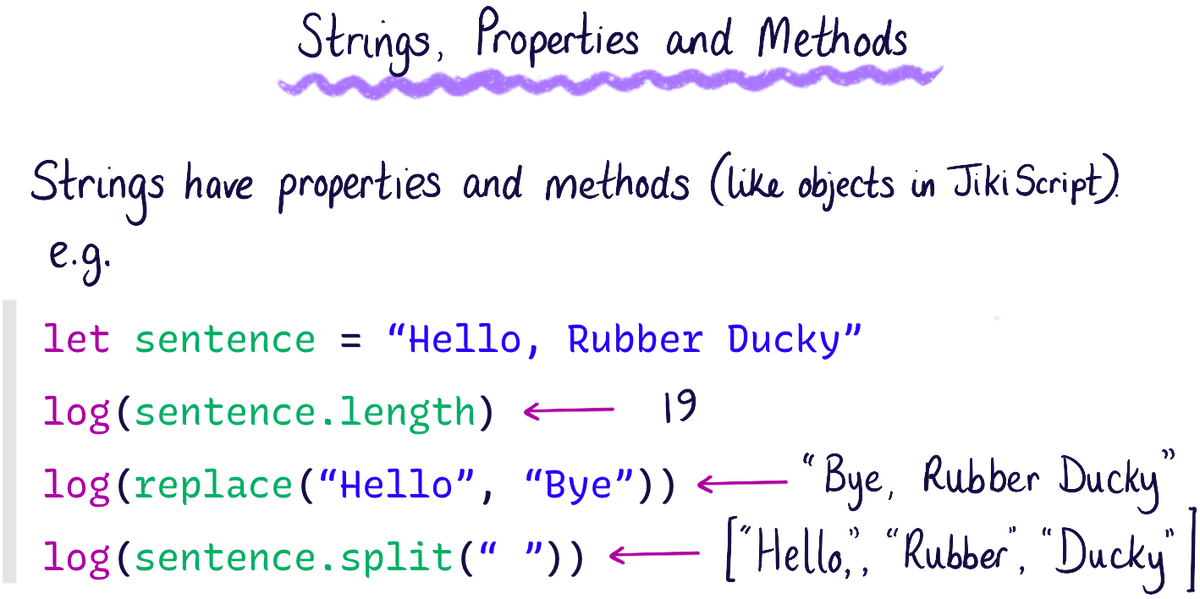 Strings, Properties and Methods
Strings have properties and methods (like objects in JikiScript).
e.g.
let sentence = “Hello, Rubber Ducky”
log(sentence.length) ← 19
log(replace(“Hello”, “Bye”)) ← “Bye, Rubber Ducky”
log(sentence.split(“ ”)) ← [“Hello,”, “Rubber”, “Ducky”]